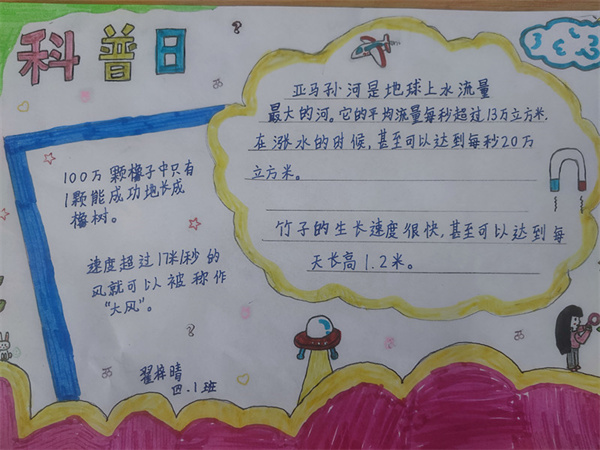 科普日
100万颗橡子中只有
1颗能成功地长成
橡树。
速度超过17米/秒的
风就可以被称作
“大风”。
翟梓晴
四.1班
亚马孙河是地球上水流量
最大的河。它的平均流量每秒超过13万立方米.
在涨水的时候,甚至可以达到每秒20万
立方米。
竹子的生长速度很快,甚至可以达到每
天长高1.2米。